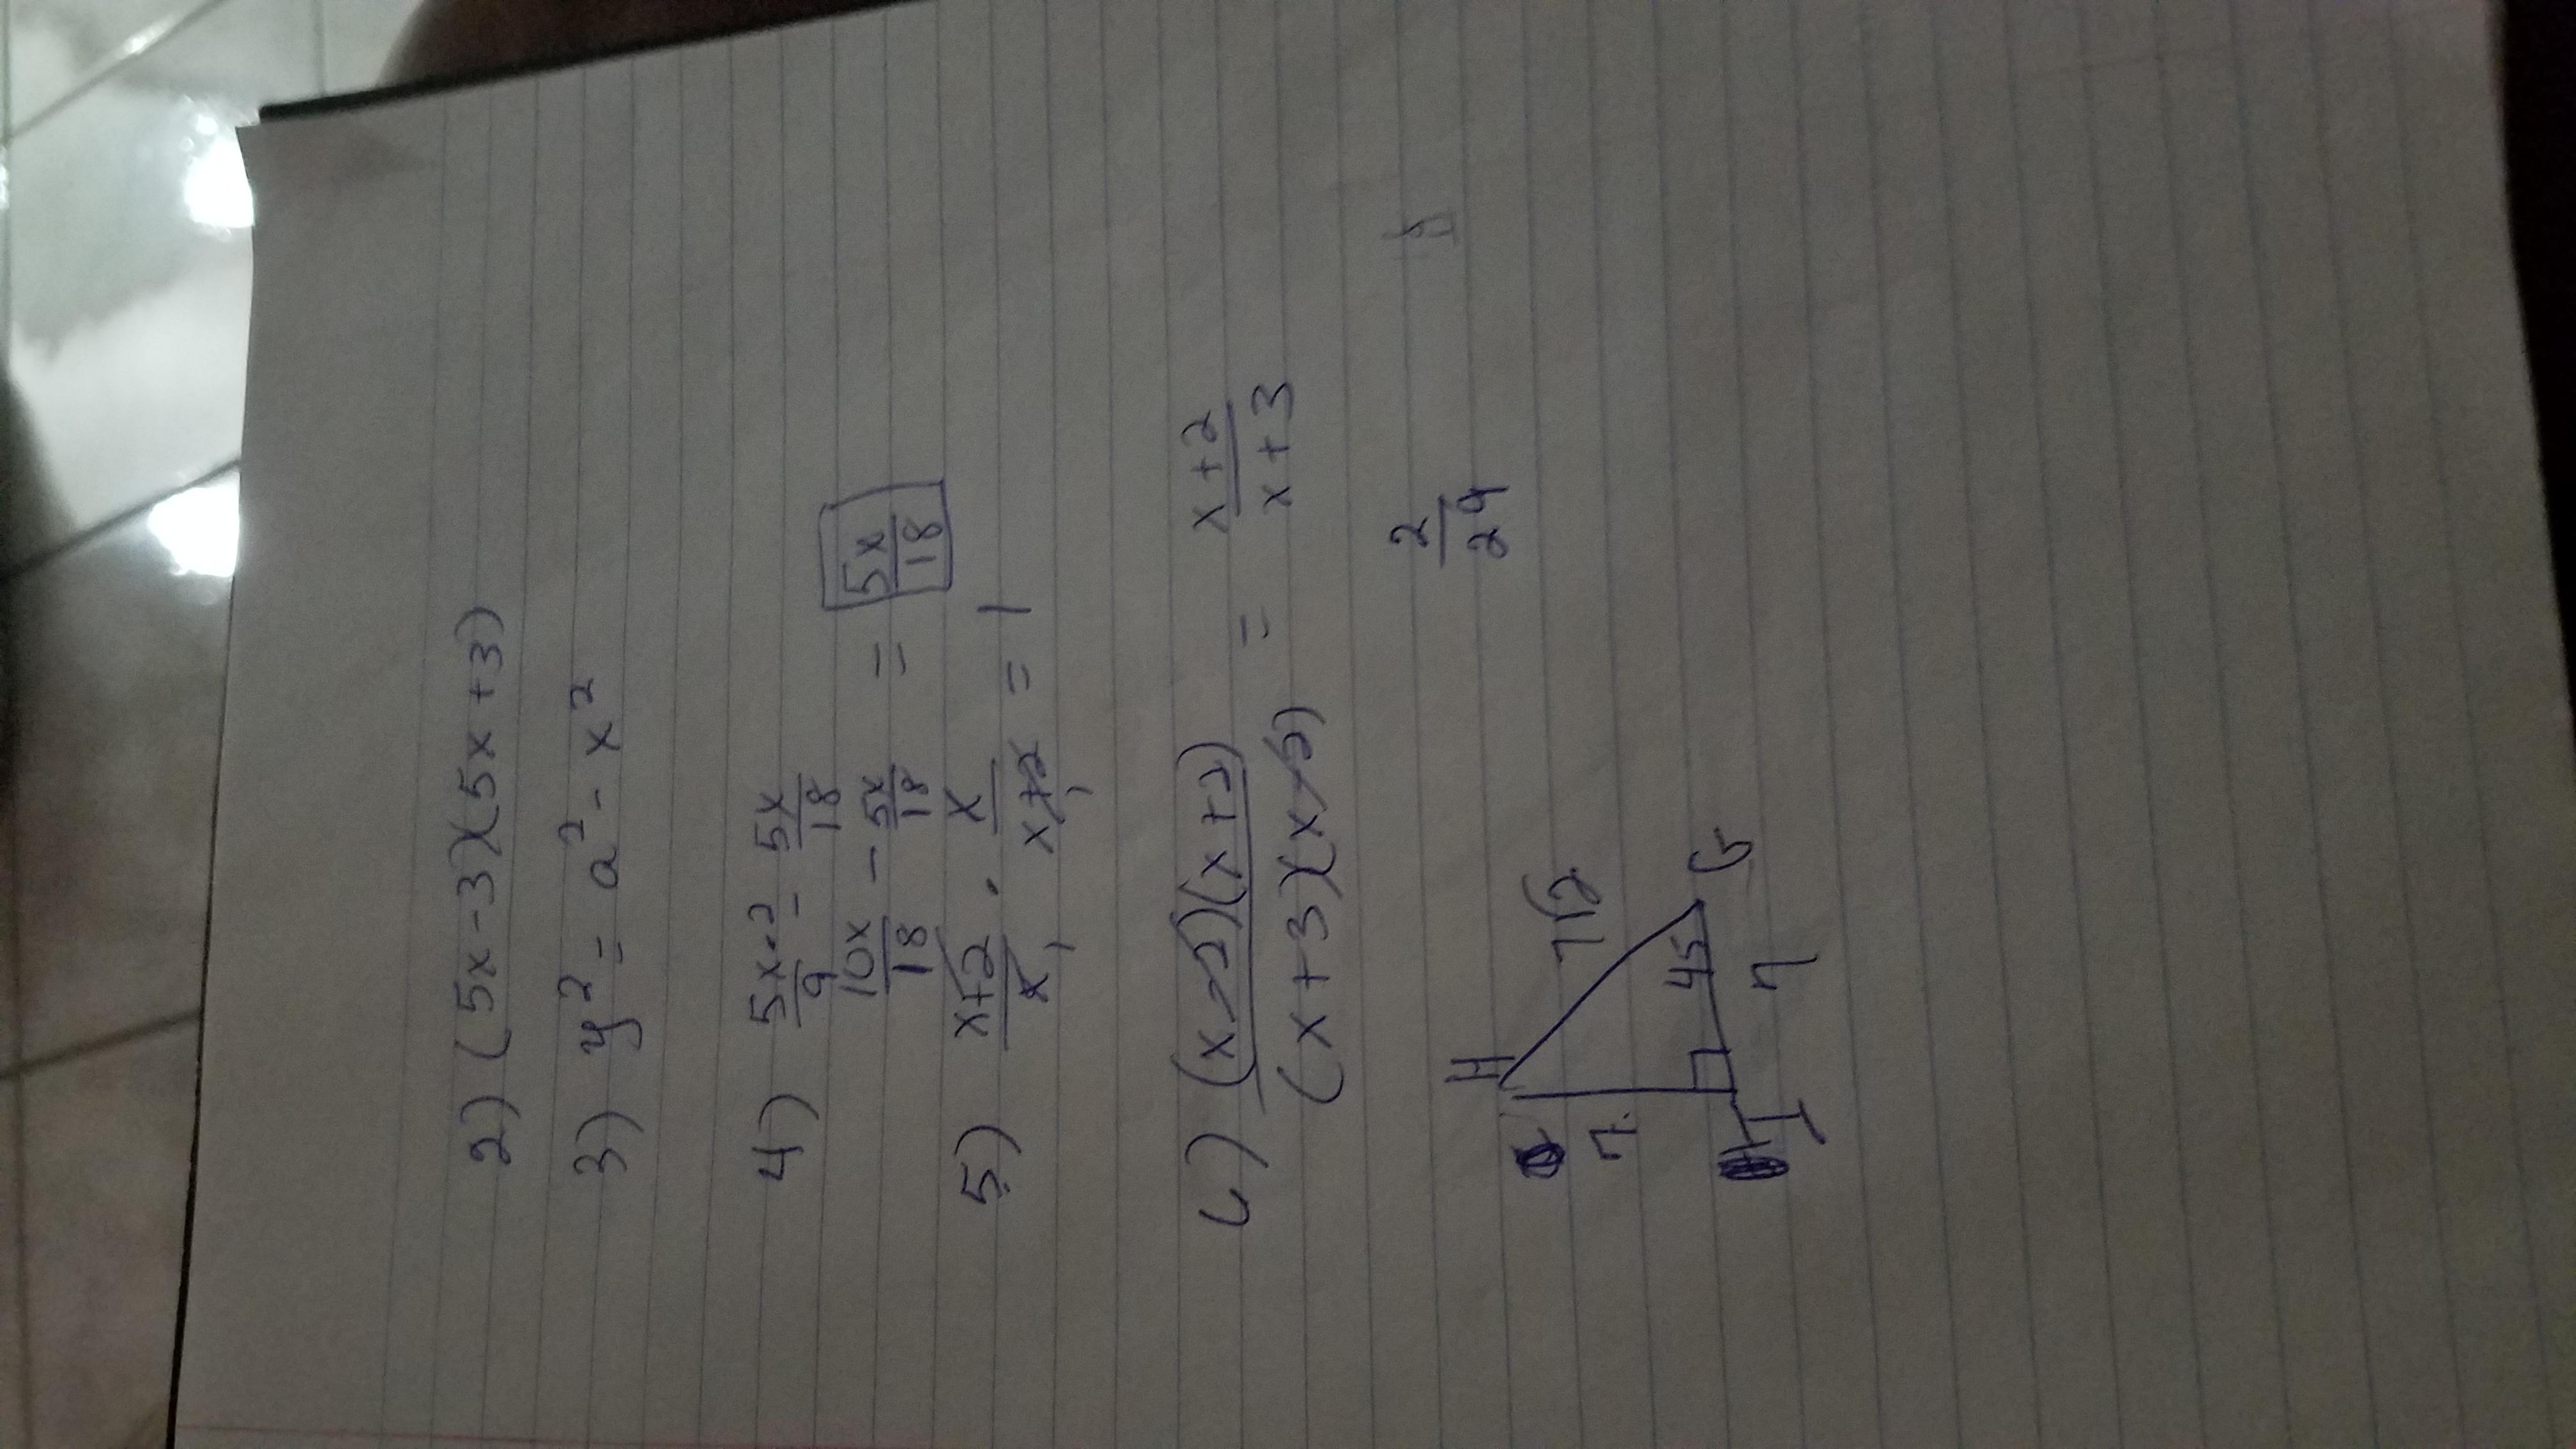 2) (5x-3)(5x+3)
3) y² = a² - x²
4) 5x·2/9 - 5x/18
10x/18 - 5x/18 = 5x/18
5) x+2/x · x/x+2 = 1
1 1
6) (x-2)(x+2)/(x+3)(x-2) = x+2/x+3
2/24
H
7 7√2
45
I 7 G